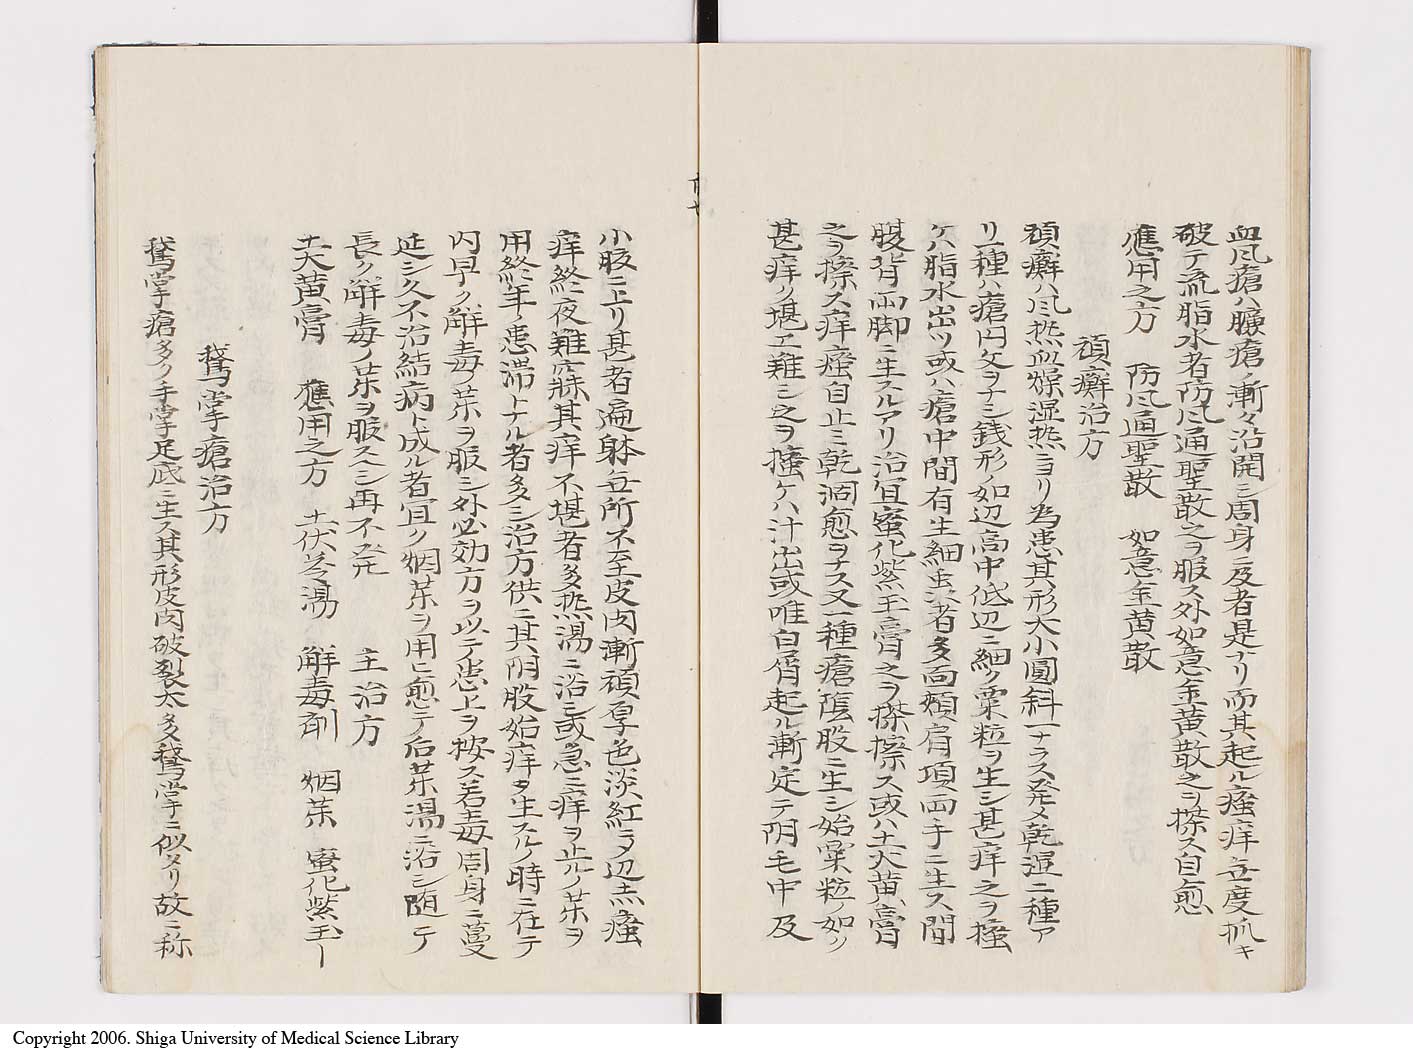 血风瘡ハ臁瘡ノ漸々沿開シ周身ニ及者是ナリ而其起ル瘙痒無度抓キ
破テ流脂水者防风通聖散之ヲ服ス外如意金黄散之ヲ搽ス自愈
應用之方 防风通聖散 如意金黄散
頑癬治方
頑癬ハ风热血燥湿热ニヨリ為患其形大小圓斜一ナラス発メ乾湿二種ア
リ一種ハ瘡内文ヲナシ銭形ノ如辺高中低辺ニ細ノ粟粒ヲ生シ甚痒之ヲ搔
ケハ脂水出ツ或ハ瘡中間有生細虫者多面頬肩項両手ニ生ス間
腹背両脚ニ生スルアリ治冝蜜化紫玉膏之ヲ搽擦ス或ハ土大黄膏
之ヲ擦ス痒瘙自止ミ乾涸愈ヲナス又一種瘡陰股ニ生シ始粟粒ノ如ク
甚痒ク堪エ難シ之ヲ搔ケハ汁出或唯白屑起ル漸定テ阴毛中及
小腹ニ上リ甚者遍躰無所不至皮肉漸頑厚色淡紅ヲ辺赤瘙
痒終夜難寐其痒不堪者多热湯ニ浴シ或急ニ痒ヲ止ルノ茶ヲ
用終年ノ患滞トナル者多シ治方供ニ其阴股始痒ヲ生スルノ時ニ在テ
内早ク解毒ノ茶ヲ服シ外必効方ヲ以テ患上ヲ按ス若毒周身ニ蔓
延シ久不治結病ト成ル者冝ク烟茶ヲ用ヒ愈テ后茶湯ニ浴シ随テ
長ク解毒ノ茶ヲ服スシ再不発 主治方
土大黄膏 應用之方 土伏苓湯 解毒剤 烟茶 蜜化紫玉ー
鵞掌瘡治方
鵞掌瘡多ク手掌足底ニ生ス其形皮肉破裂太多鵞掌ニ似タリ故ニ称
Copyright 2006. Shiga University of Medical Science Library